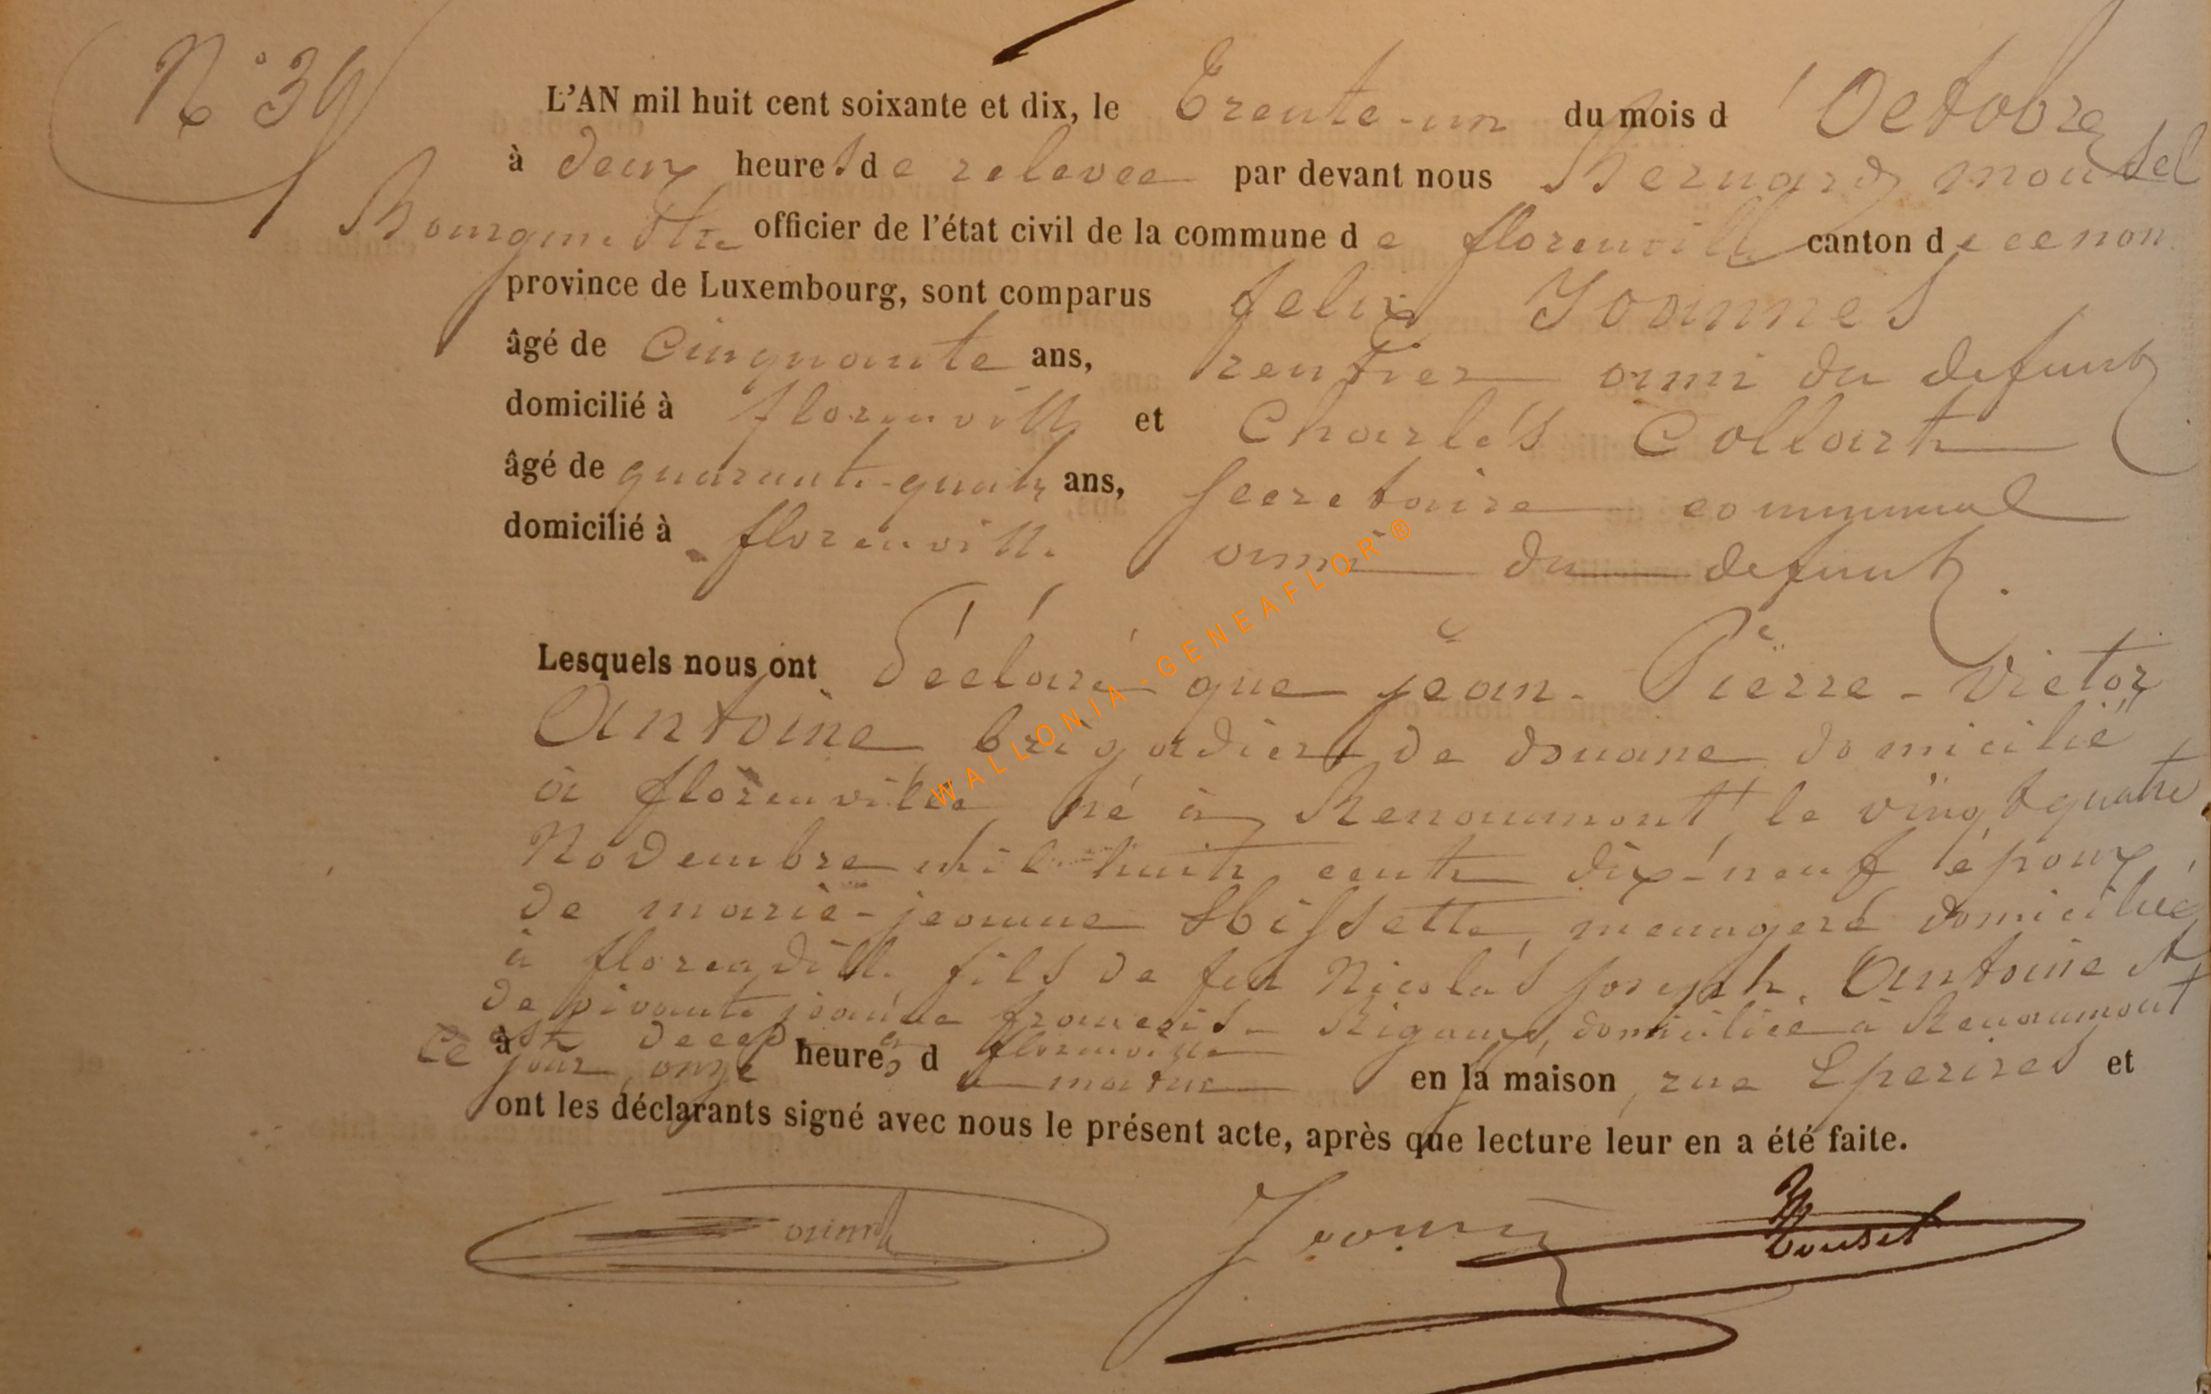 N° 39
L'AN mil huit cent soixante et dix, le Trente-un du mois d'Octobre
à deux heures de relevée par devant nous Bernard mousel
Bourgmestre officier de l'état civil de la commune de florenville canton de
province de Luxembourg, sont comparus felix Joannes
âgé de Cinquante ans, rentier ami du defunt
domicilié à florenville et Charles Collart
âgé de quarante-quatre ans, secretaire communal
domicilié à florenville ami du defunt.
Lesquels nous ont déclaré que jean-Pierre-Victor
Antoine brigadier de douane domicilié
à florenville né à Renaumont le vingt quatre
Novembre mil huit cent dix-neuf époux
de marie-jeanne Hissette, menagere domiciliée
à florenville fils de feu Nicolas joseph Antoine et
de vivante jeanne françois Rigaux, domiciliée à Renaumont
est décédé à florenville
ce à jour onze heures d matin en la maison, rue Epérires et
ont les déclarants signé avec nous le présent acte, après que lecture leur en a été faite.
Joannes Mousel
WALLONIA-GENEAFLOR®